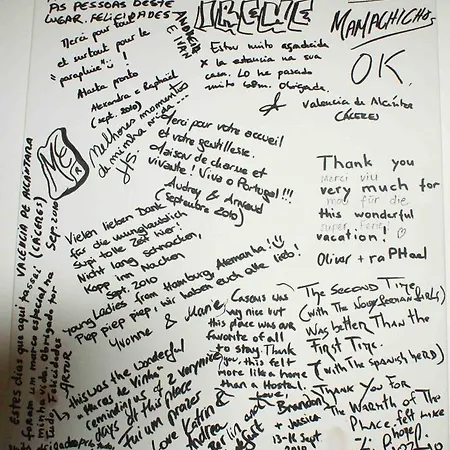 AS PESSOAS DESTE
LUGAR. FELICIDADES
ANDREIA
E IVAN
Merci pour tout
et surtout pour le
"parapluie"!
Hasta pronto
Alexandra e Raphaël
(sept. 2010)
IRENE
Estou muito agradecida
x la estancia na sua
casa. Lo he pasado
muito bem. Obrigada.
MAMACHICHOS
OK.
valencia de Alcántara
CÁCERES
Melhores momentos
de minha vida...
Merci pour votre accueil
et votre gentillesse.
Maison de charme et
vivante! Viva o Portugal!!!
Audrey & Arnaud
(septembre 2010)
Thank you
Merci viu
very much for
this wonderful
vacation!
Oliver + raPHael
Vielen lieben Dank
für die unglaublich
Supi tolle Zeit hier!
Nicht lang schnacken,
Kopp im Nacken
Sept. 2010
Young Ladies from Hamburg, Alemanha!
Piep piep piep, wir haben euch alle lieb!
Yvonne & Marie
VALENCIA DE ALCÁNTARA
(CÁCERES)
Sep. 2010
Estes dias que aqui passei
foram um marco especial na
minha vida. Obrigado por
tudo. Felicidades
this was the wonderful
"Turres de Vinho"
reminding us of 2 very nice
days at this place
Fui um prazer
Love Katrin &
Andrea
Berlin and
Casous was
very nice but
this place was our
favorite of all
to stay. Thank
you, this felt
more like a home
than a Hostal.
Love,
Brandon
+ Jessica
13-16 Sept
2010
The Second Time
was better than the
First Time.
(with the Spanish herd)
Thank you for
the warmth of the
Place, felt like